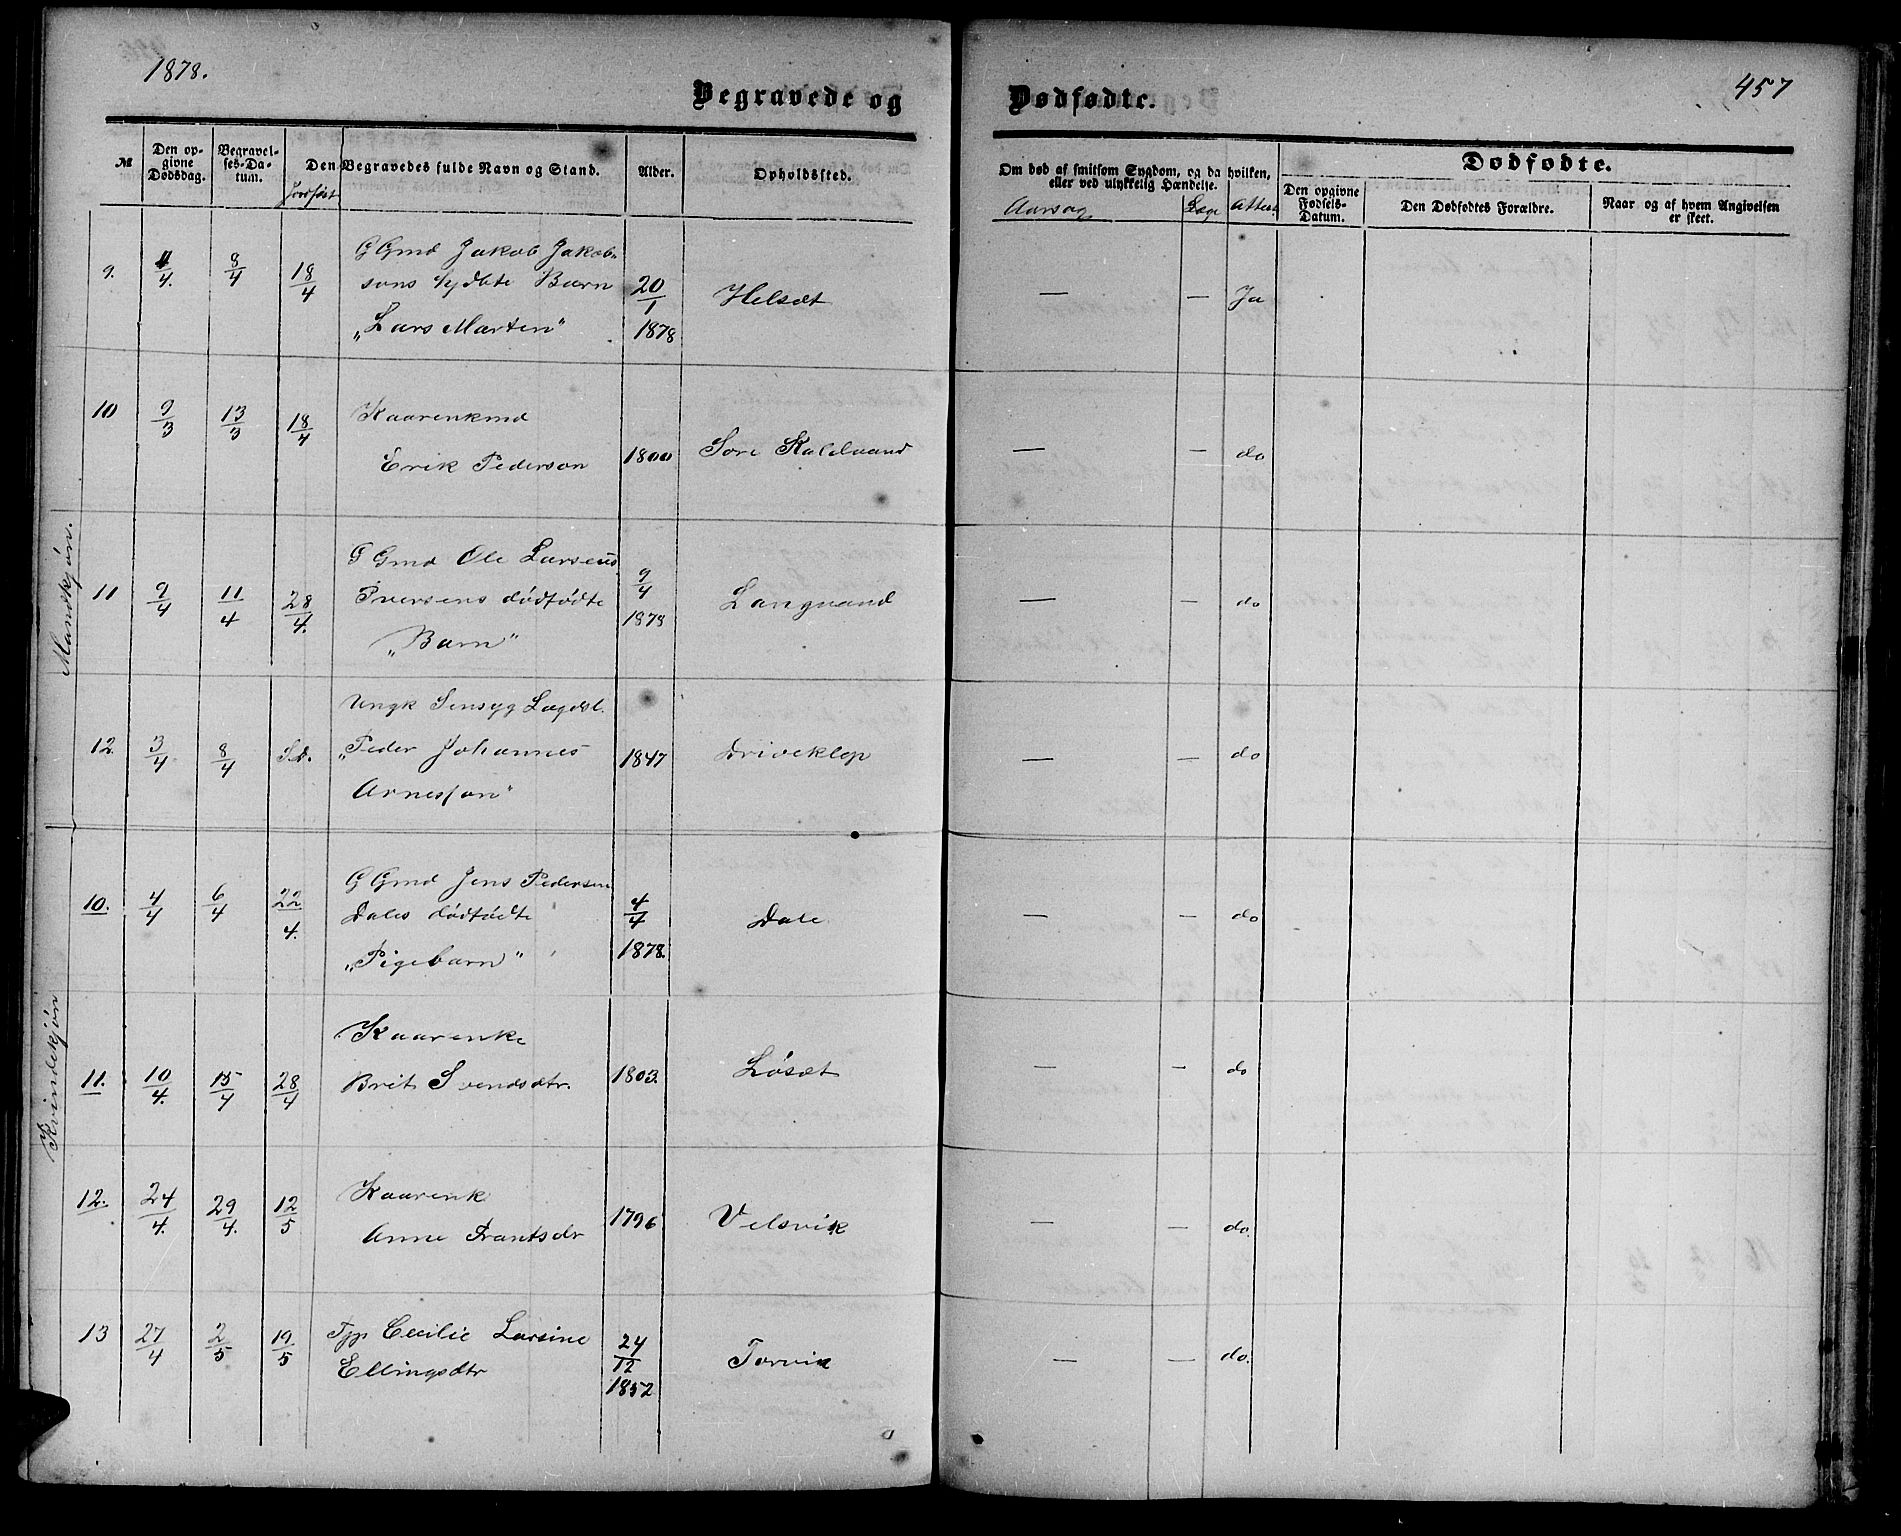 1878.
457
Begravede og
Dødfødte.
№
Den opgivne Dødsdag.
Begravelses-Datum.
Den Begravedes fulde Navn og Stand.
Jordfæst
Alder.
Opholdssted.
Om død af smitsom Sygdom, og da hvilken, eller ved ulykkelig Hændelse.
Aarsag
Læge
Attest
Dødfødte.
Den opgivne Fødsels-Datum.
Den Dødfødtes Forældre.
Naar og af hvem Angivelsen er skeet.
Mandkjøn.
9. 4/4. 8/4 18/4 G Gmd Jakob Jakob-
sons Barn 20/1 Helsæt — — Ja
"Lars Marten" 1878
10 9/3 13/3 18/4 Kaarenkmd
Erik Pederson 1800 Sore Kaldvand — — do
11 9/4 11/4 28/4. G Gmd Ole Larsens 9/4
Iversens dødfødte Langvand — — do
"Barn" 1878
12. 3/4 8/4 Sd. Ungk Sensyg Lægdsl.
"Peder Johannes 1847 Driveklep — — do
Arnesson"
Kvindekjøn
10. 4/4 6/4 22/4. G Gmd Jens Pedersen
Dales dødfødte 4/4 Dale — — do
"Pigebarn" 1878.
11. 10/4. 15/4 28/4 Kaarenke
Brit Svendsdtr. 1803. Løsæt — — do
12. 24/4. 29/4. 12/5 Kaarenk
Anne Frantsdr 1796 Velsvik — — do.
13 27/4 2/5 19/5 Tjp Cecilie Larsine 24/12
Ellingsdtr 1852 Torvik — — do.